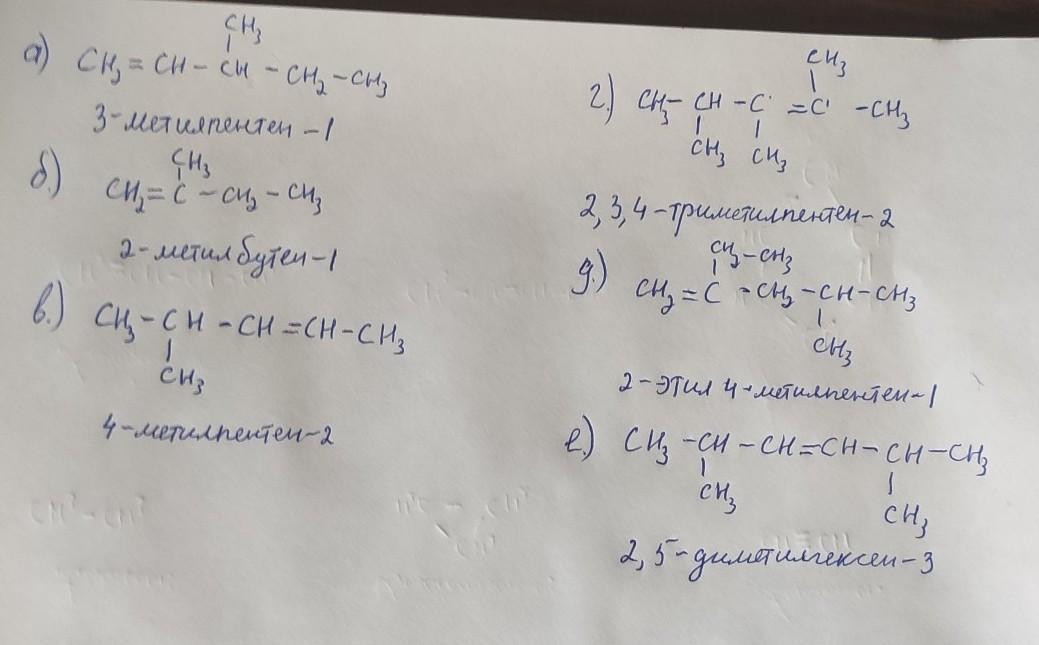 CH₃
а) CH₂ = CH - CH - CH₂ - CH₃
3-метилпентен-1
CH₃
б.) CH₂ = C - CH₂ - CH₃
2-метилбутен-1
в.) CH₃ - CH - CH = CH - CH₃
CH₃
4-метилпентен-2
CH₃
г.) CH₃ - CH - C = C - CH₃
CH₃ CH₃
2,3,4-триметилпентен-2
CH₂-CH₃
д.) CH₂ = C - CH₂ - CH - CH₃
CH₃
2-этил 4-метилпентен-1
е.) CH₃ - CH - CH = CH - CH - CH₃
CH₃
CH₃
2,5-диметилгексен-3